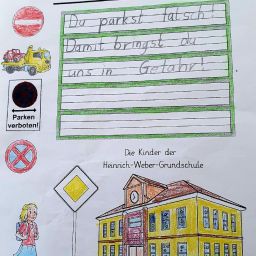 Du parkst falsch!
Damit bringst du
uns in Gefahr!
Parken
verboten!
Die Kinder der
Heinrich-Weber-Grundschule